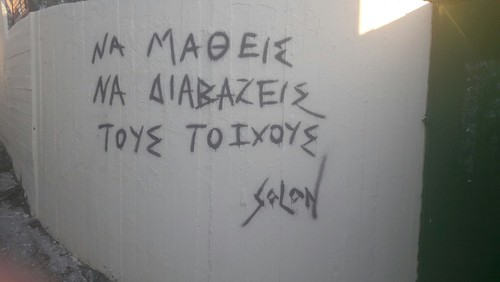 ΝΑ ΜΑΘΕΙΣ
ΝΑ ΔΙΑΒΑΖΕΙΣ
ΤΟΥΣ ΤΟΙΧΟΥΣ
SOLON